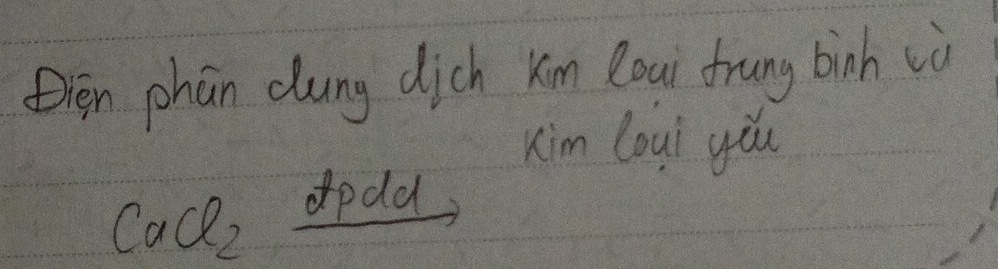 Điện phân dung dịch kim loại trung bình và
kim loại yếu
CaCl₂ đpdd →